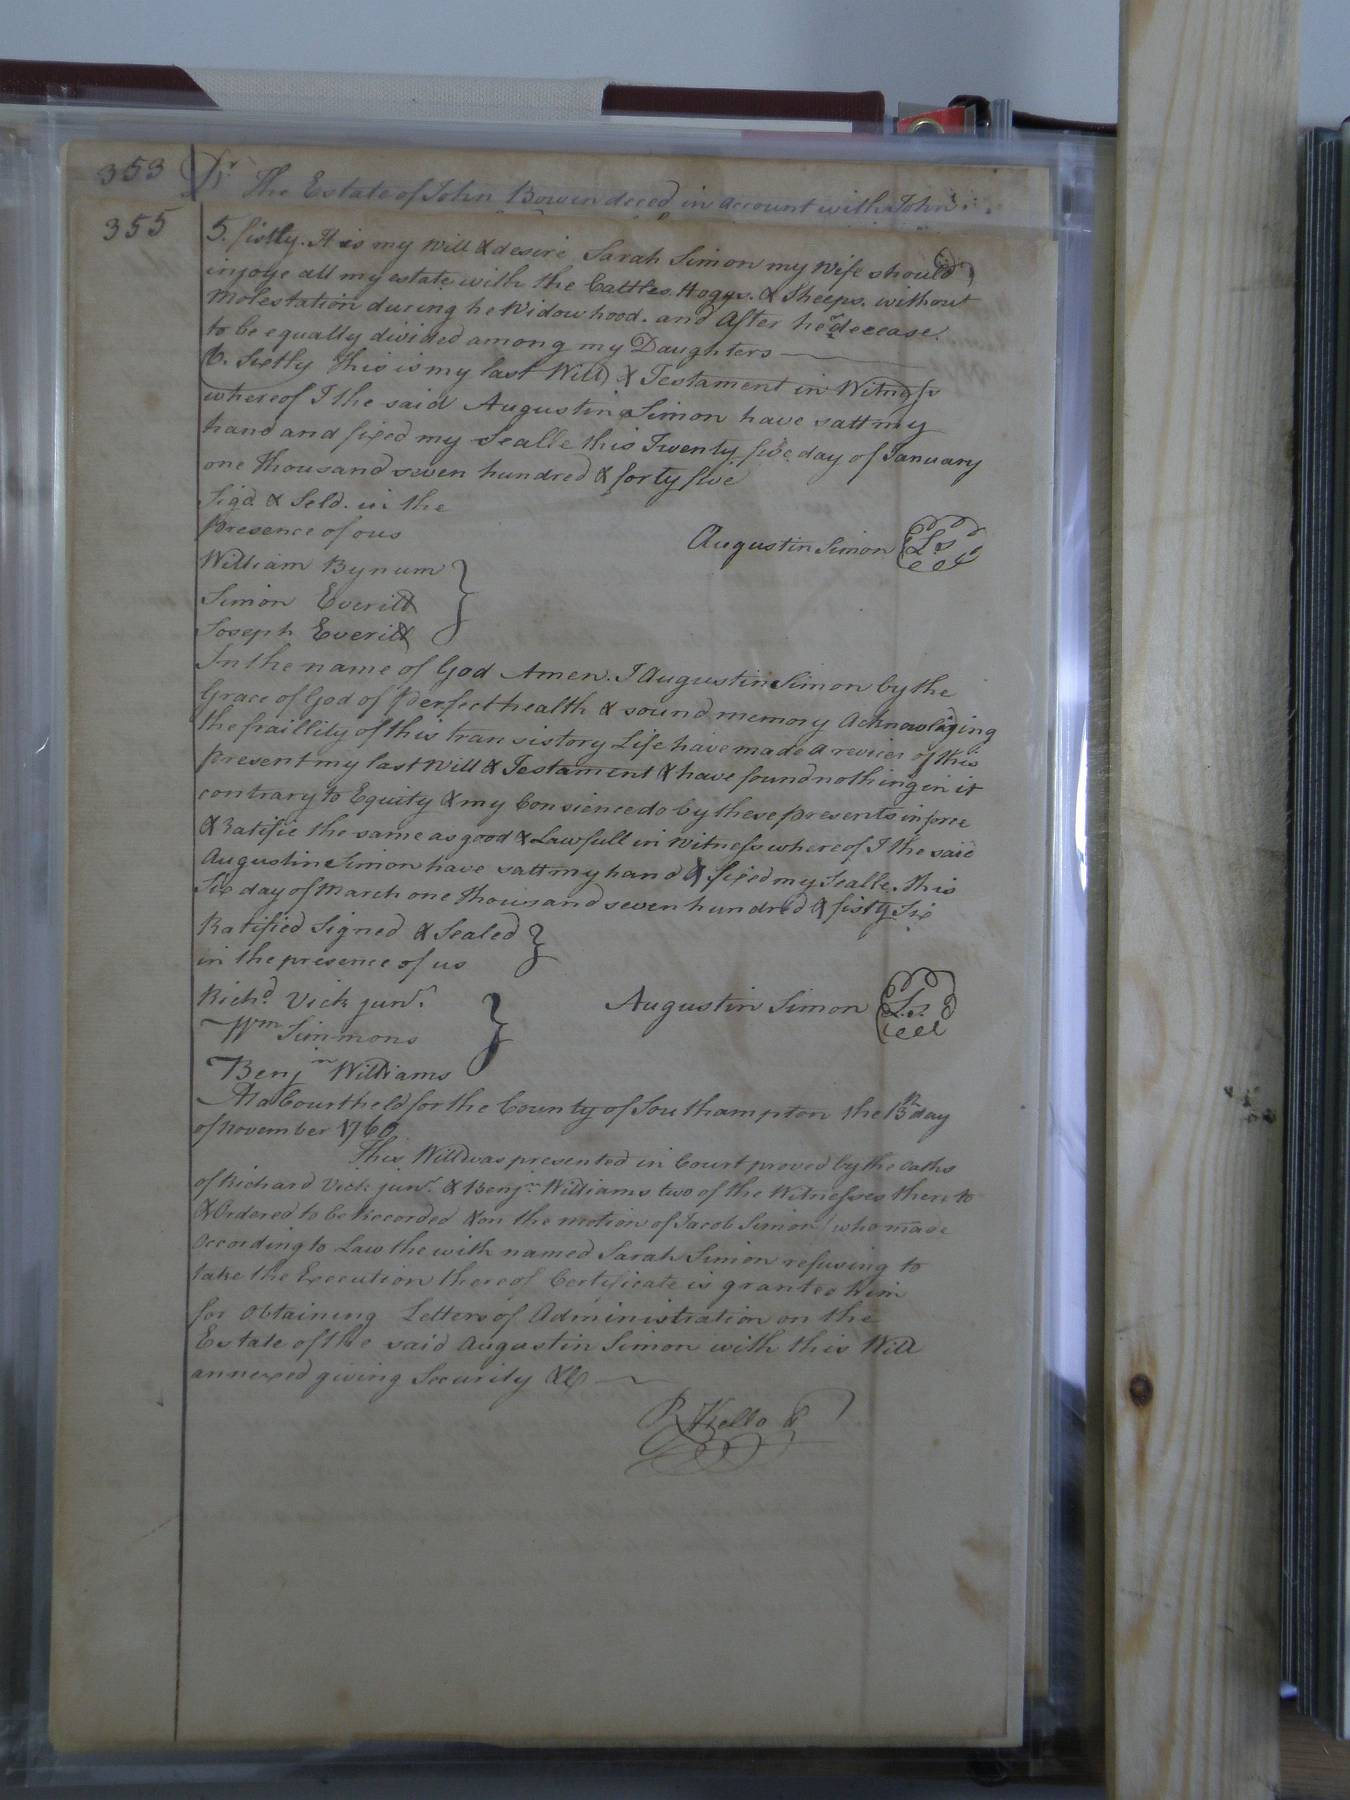 353 Dr The Estate of John Bowin deced in account with John
355
5. fiftly. It is my will & desire Sarah Simon my wife should
injoye all my estate with the Cattles. Hoggs. & Sheeps. without
molestation during he Widowhood. and After her decease.
to be equally divided among my Daughters
6. Sixtly this is my last Will & Testament in Witness
whereof I the said Augustin Simon have satt my
hand and fixed my Sealle this Twenty five day of January
one thousand seven hundred & forty five
Sigd. & Seld. in the
Presence of ous
Augustin Simon Ls
William Bynum
Simon Everitt
Joseph Everitt
In the name of God Amen. I Augustin Simon by the
Grace of God of Perfect health & sound memory Acknowliging
the fraillity of this transistory Life have made a revies of this
present my last Will & Testament & have found nothing in it
contrary to Equity & my Consience do by these presents inforce
& Ratifie the same as good & Lawfull in witness whereof I the said
Augustin Simon have satt my hand & fixed my Sealle. this
Six day of March one thousand seven hundred & fisty Six
Ratified Signed & Sealed
in the presence of us
Richd. Vick junr.
Augustin Simon L.s.
Wm Simmons
Benjn Williams
At a Court held for the County of Southampton the 13th day
of November 1760
This Will was presented in Court proved by the oaths
of Richard Vick junr. & Benjn Williams two of the Witnesses there to
& Ordered to be Recorded & on the motion of Jacob Simon who made
according to Law the with named Sarah Simon refusing to
take the Execution thereof Certificate is granted him
for obtaining Letters of Administration on the
Estate of the said Augustin Simon with this Will
annexed giving Security &c
R Kello